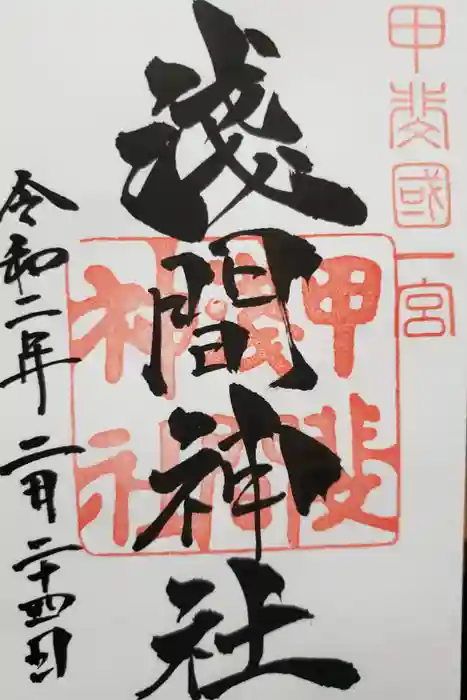 甲斐國一宮
浅間神社
甲斐
浅間
神社
令和二年二月二十四日